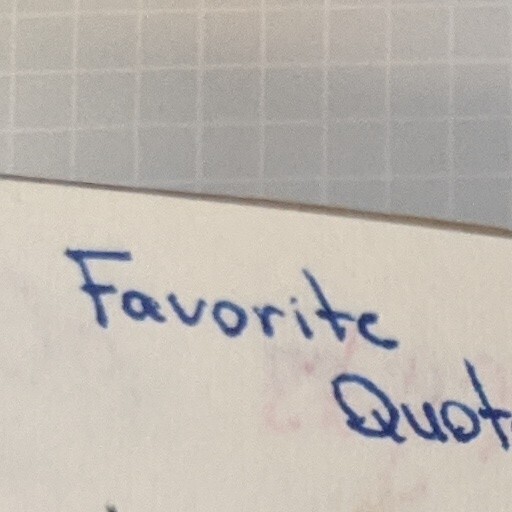 Favorite
Quot